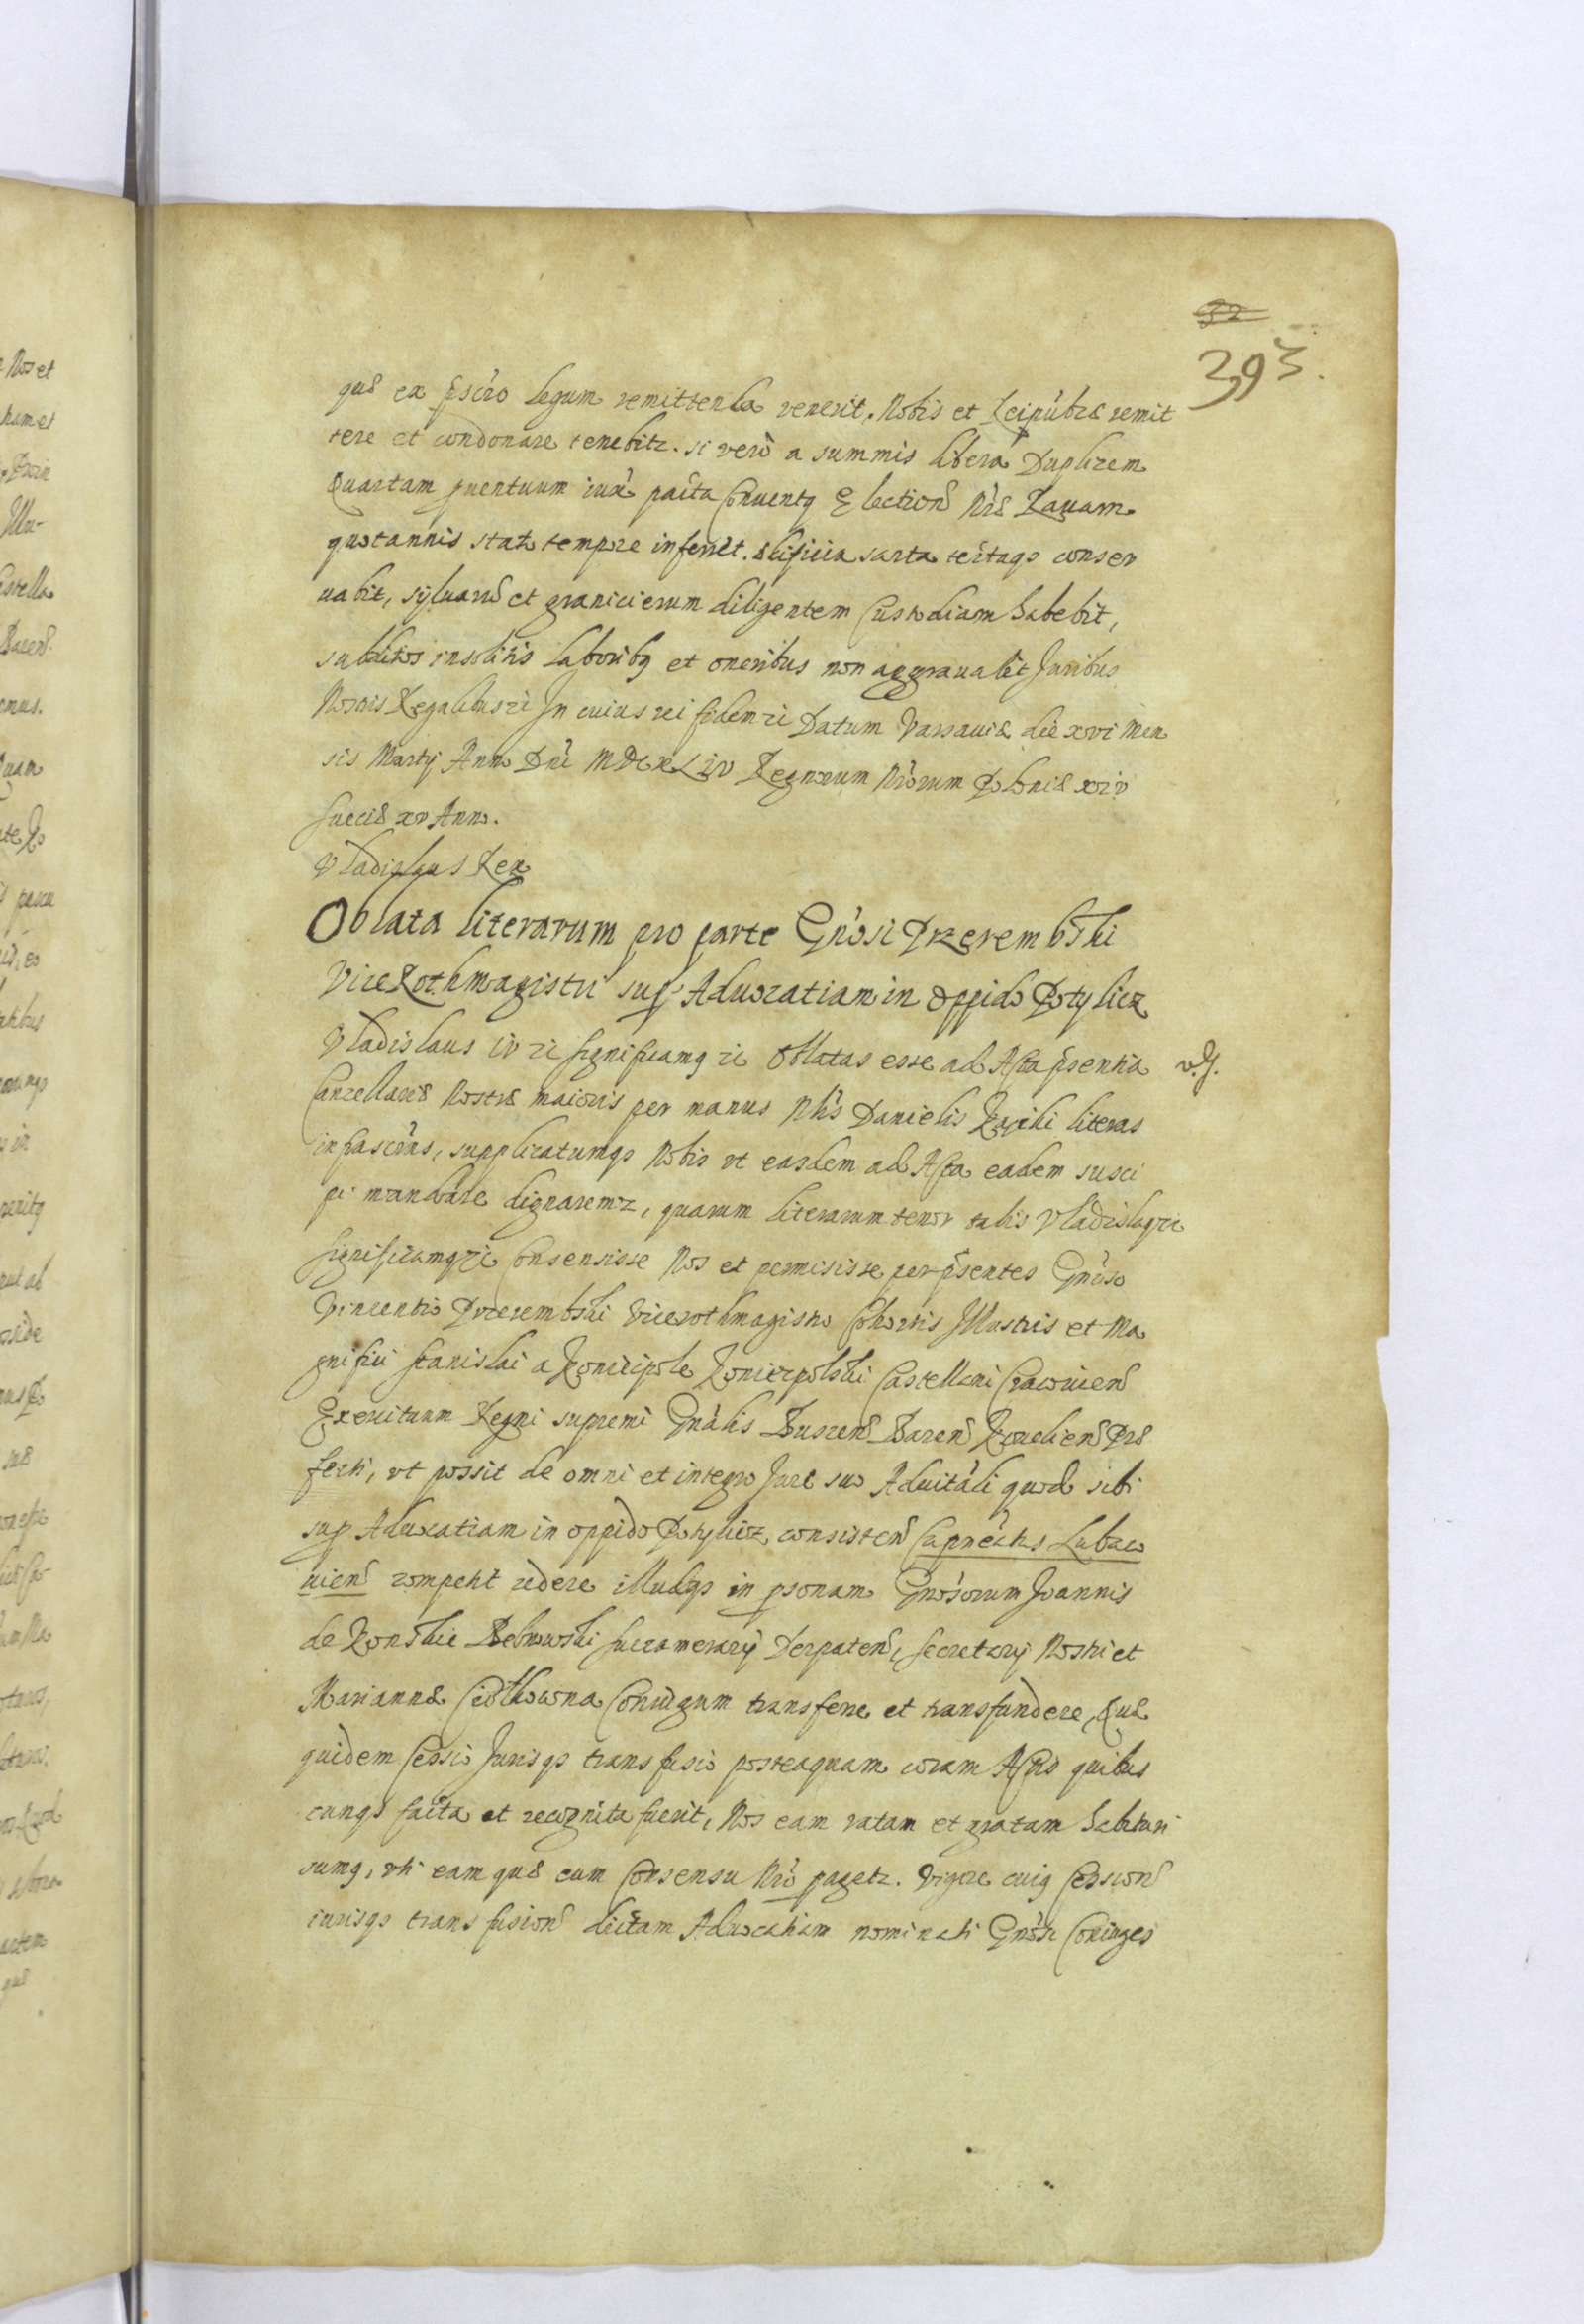 32
393.
quę ex p̃scr̃o legum remittenda venerit, Nobis et Reipubcę remit
tere et condonare tenebitr. si verò a summis libera Duplicem
Quartam p̃uentuum iuxt̃ pacta Conuentq Election Nr̃ę Rauam
quotannis stato tempore inferet. ędificia sarta tectaqȝ conser
uabit, syluarũ et granicierum diligentem Custodiam habebit,
subditos insolitis laboribq et oneribus non aggrauabit Juribus
Nostris Regalibus ꝛc̃ In cuius rei fidem ꝛc̃ Datum Varsauię die xvi Men
sis Martij Anno Dni MDCXLIV Regnorum Nr̃orum Polonię xiv
Suecię xv Anno.
Vladislaus Rex
Oblata literarum pro parte Gñosi Przerembski
ViceRothmagistri sup Aduocatiam in oppido Potylicz
Vladislaus iv ꝛc̃ Significamq ꝛc̃ Oblatas esse ad Acta p̃sentia
Cancellarię Nostrę maioris per manus Nl̃is Danielis literas
infrascr̃tas, supplicatumqȝ Nobis vt easdem ad Acta eadem susci
pi mandare dignaremr, quarum literarum tenor talis Vladislaq ꝛc̃
Significamq ꝛc̃ Consensisse Nos et permisisse per p̃sentes Gñoso
Vincentio Przerembski Vicerothmagistro Cohortis Illustris et Ma
gnifici Stanislai a Koniecpole Koniecpolski Castellani Cracouien
Exercituum Regni supremi Gñalis Buscen Baren Kowelien Prę
fecti, vt possit de omni et integro Jure suo Aduitali quod sibi
sup Aduocatiam in oppido Potylicz consisten Capneatus Lubaco
uien competit cedere illudqȝ in psonam Gñosorum Joannis
de Konskie Debowski Succamerarij Derpaten, Secretarij Nostri et
Mariannę Ciolkowna Coniugum transferre et transfundere, Quę
quidem Cessio Jurisqȝ transfusio posteaquam coram Actis quibus
cunqȝ facta et recognita fuerit, Nos eam ratam et gratam habituri
sumq, vti eam quę cum Consensu Nr̃o pagetr. Vigore cuiq Cession
iurisqȝ transfusion dictam Aduocatiam nominati Gñosi Coniuges